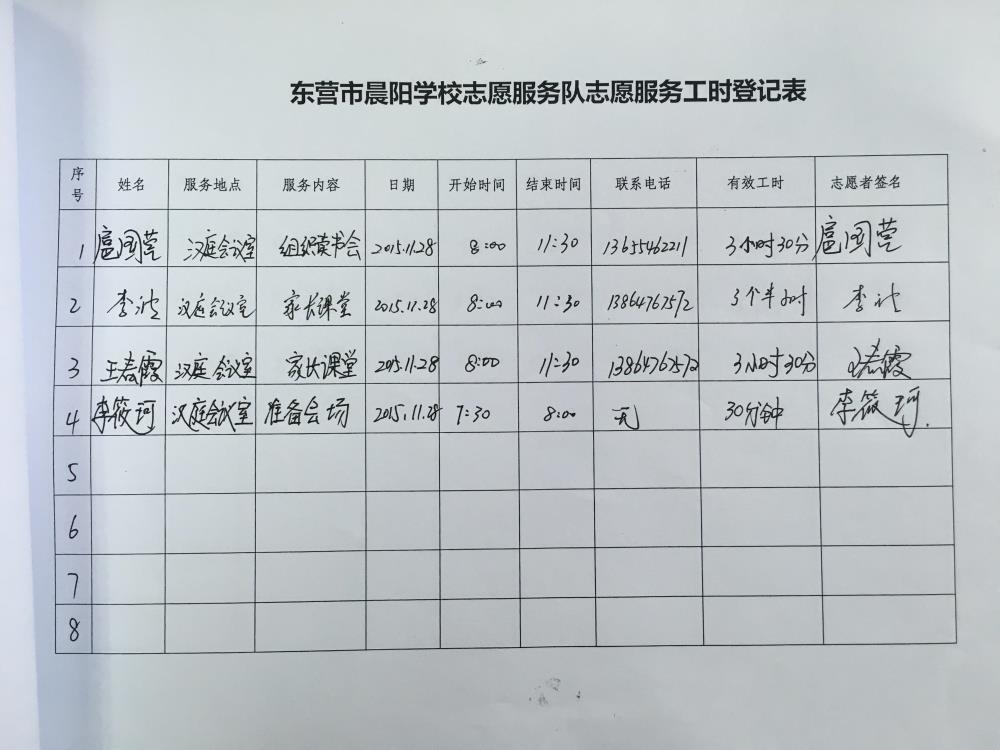 东营市晨阳学校志愿服务队志愿服务工时登记表
序号 姓名 服务地点 服务内容 日期 开始时间 结束时间 联系电话 有效工时 志愿者签名
1 扈国营 汉庭会议室 组织读书会 2015.11.28 8:00 11:30 13655462211 3小时30分 扈国营
2 李 汉庭会议室 家长课堂 2015.11.28 8:00 11:30 13864762572 3个半小时 李
3 王春霞 汉庭会议室 家长课堂 2015.11.28 8:00 11:30 13864762572 3小时30分 王春霞
4 李筱珂 汉庭会议室 准备会场 2015.11.28 7:30 8:00 无 30分钟 李筱珂
5
6
7
8